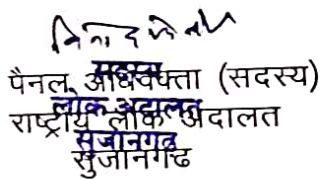 सदस्य
पैनल अधिवक्ता (सदस्य)
लोक अदालत
राष्ट्रीय लोक अदालत
सुजानगढ
सुजानगढ